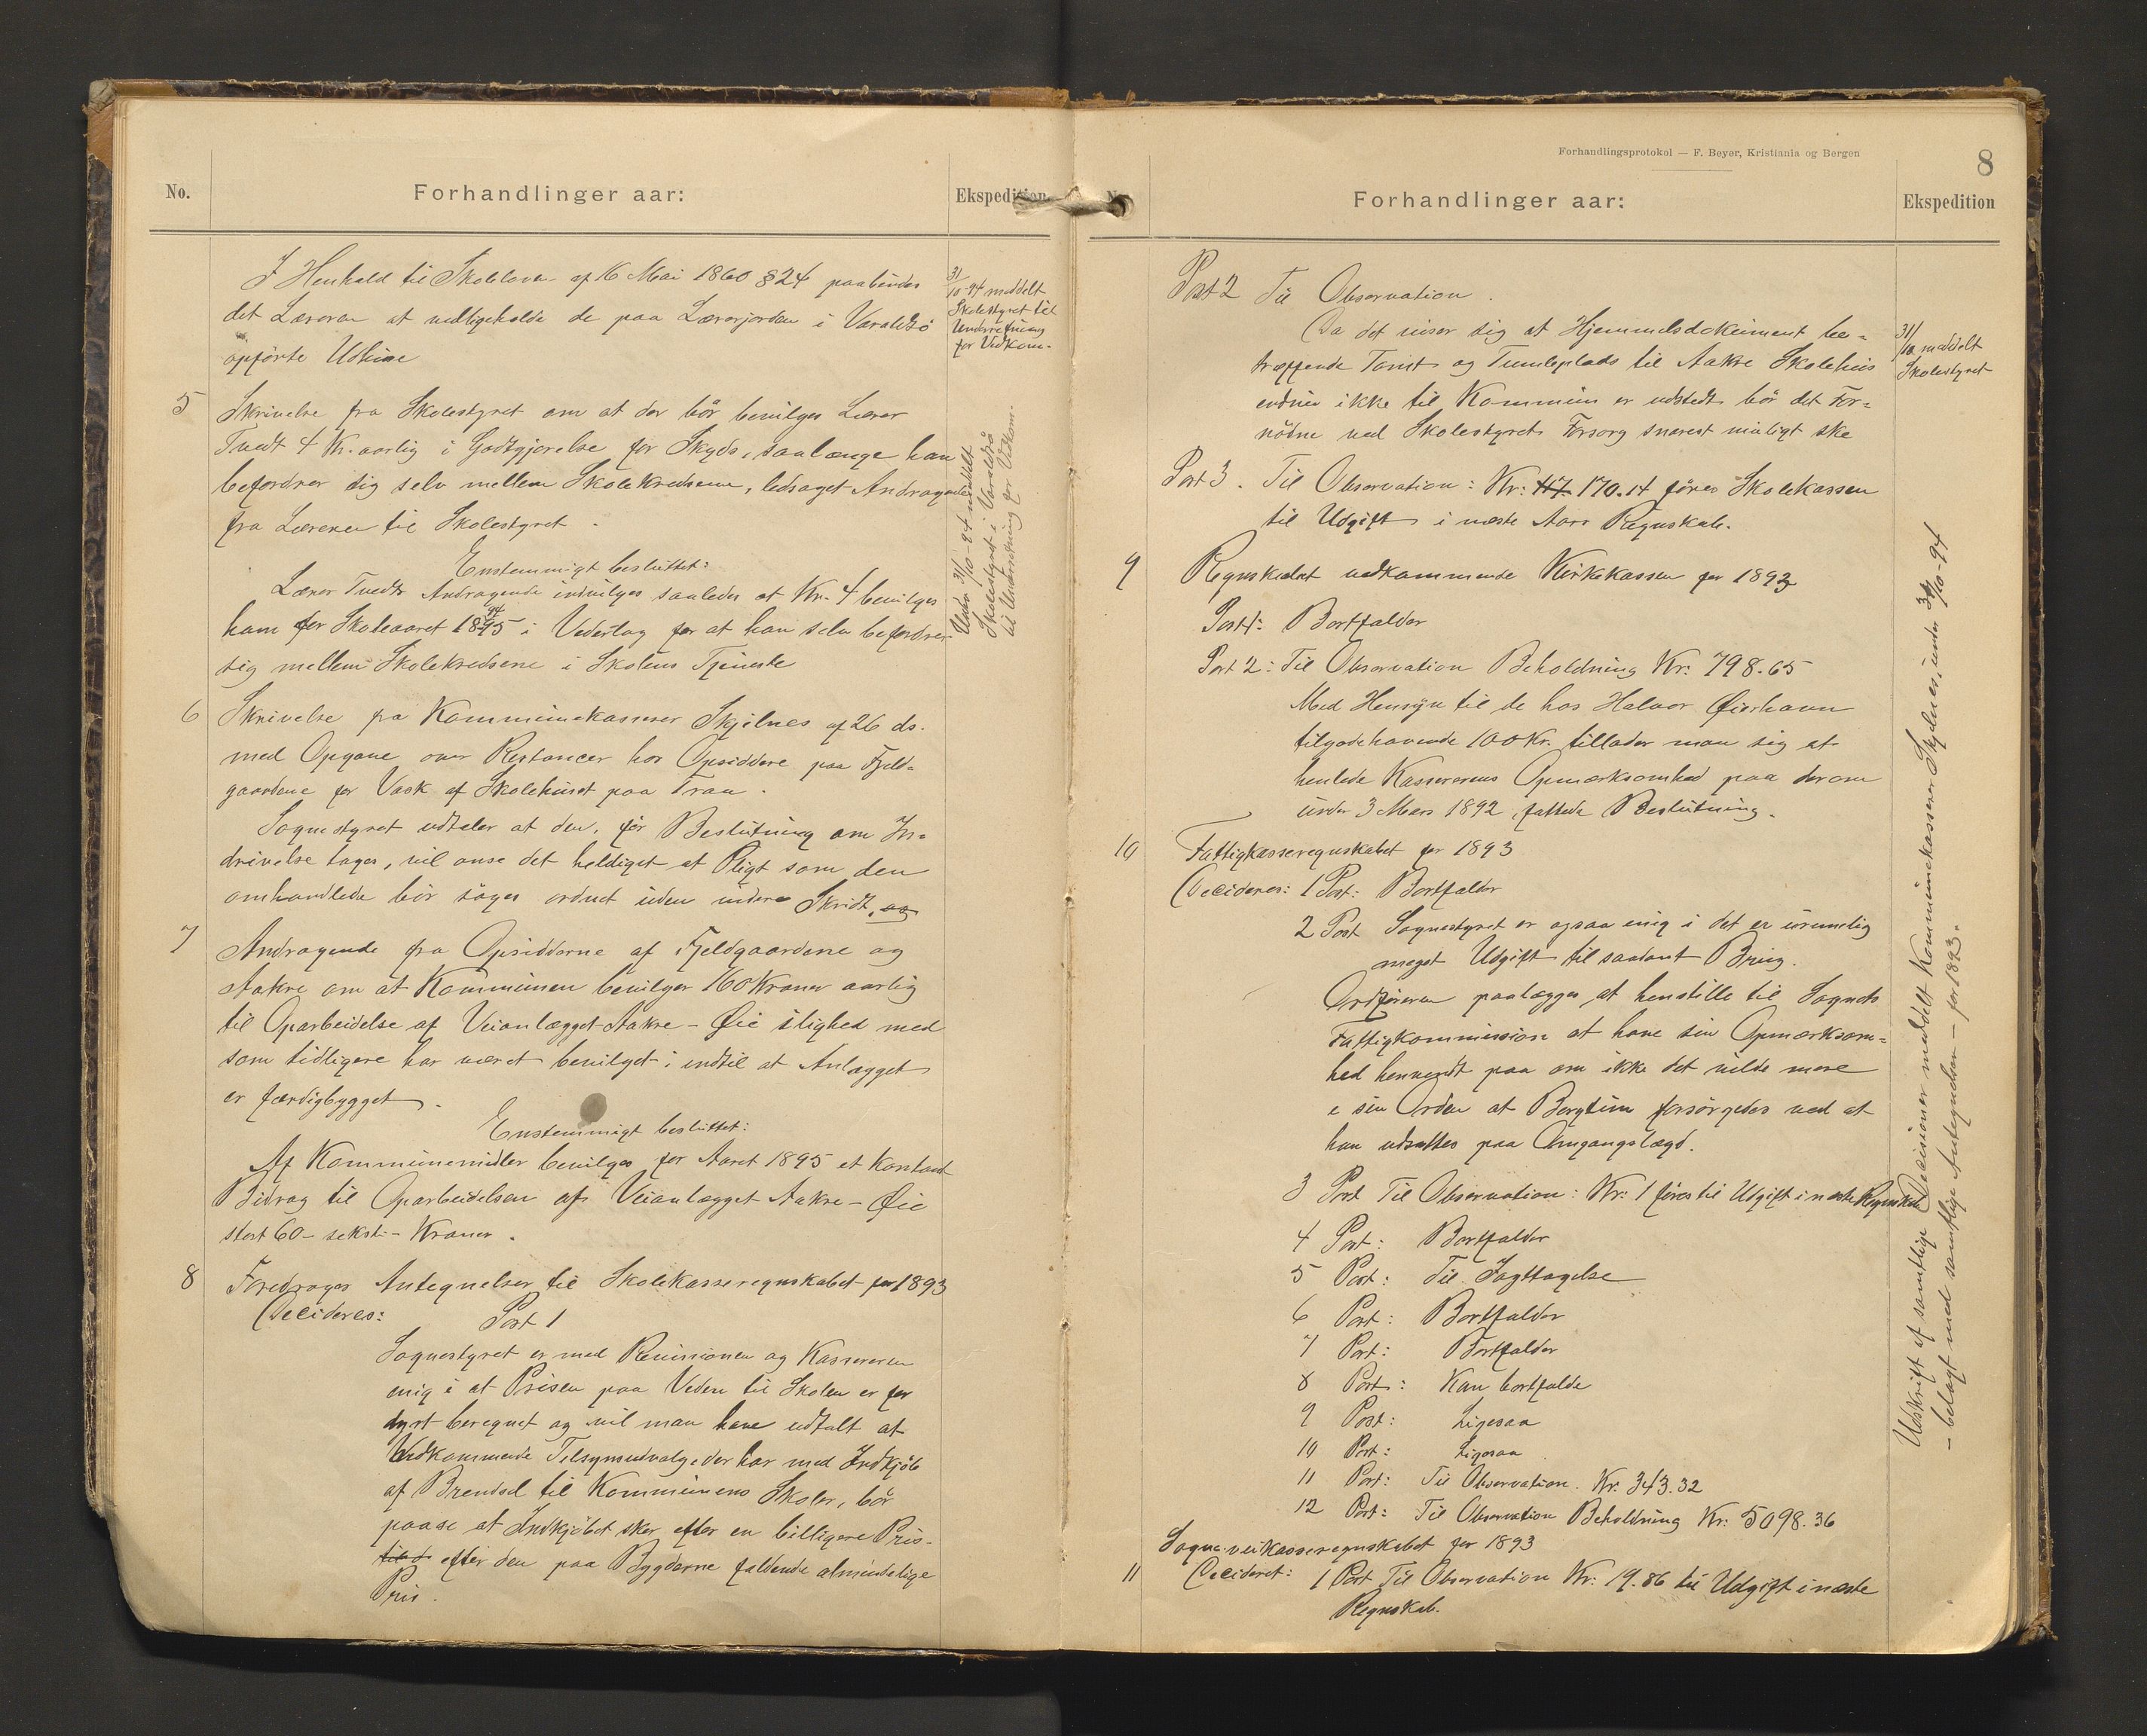 No.
Forhandlinger aar:
Ekspedition
I Henhold til Skoleloven af 16 Mai 1860 § 24 paabindes
det Læreren at vedligeholde de paa Lærerjorden i Varaldsö
opførte Udhuse
31/10-94 meddelt
Skolestyret til
Underretning
for Vedkom-
5 Skrivelse fra Skolestyret om at der bör bevilges Lærer
Tvedt 4 Kr. aarlig i Godtgjørelse for Skyds, saalænge han
befordrer sig selv mellem Skolekredsene, ledsaget Andragende
fra Læreren til Skolestyret.
Enstemmigt besluttet:
Lærer Tvedts Andragende indvilges saaledes at Kr. 4 bevilges
ham for Skoleaaret 1894/95 i Vederlag for at han selv befordrer
sig mellem Skolekredsene i Skolens Tjeneste
Under 31/10-94 meddelt
Skolestyret i Varaldsö
til Underretning for Vedkom.
6 Skrivelse fra Kommunekasserer Skjelnes af 26 ds.
med Opgave over Restancer hos Opsiddere paa Fjeld-
gaardene for Vask af Skolehuset paa Traa.
Sognestyret udtaler at den, før Beslutning om In-
drivelse tages, vil anse det heldigst at Pligt som den
omhandlede bör söges ordnet uden videre Skridt. og
7 Andragende fra Opsidderne af Fjeldgaardene og
Aakre om at Kommunen bevilger 160 Kroner aarlig
til Oparbeidelse af Veianlægget Aakre - Øie i lighed med
som tidligere har været bevilget i indtil at Anlægget
er færdigbygget.
Enstemmigt besluttet:
Af Kommunemidler bevilges for Aaret 1895 et Kontant
Bidrag til Oparbeidelsen af Veianlægget Aakre - Øie
stort 60 - seksti - Kroner.
8 Foredrages Antegnelser til Skolekasseregnskabet for 1893
Decideres: Post 1
Sognestyret er med Revisionen og Kassereren
enig i at Prisen paa Veden til Skolen er for
dyrt beregnet og vil man have udtalt at
Vedkommende Tilsynsudvalg der har med Indkjöb
af Brendsel til Kommunens Skoler, bör
paase at Indkjöbet sker efter en billigere Pris-
efter den paa Bygderne faldende almindelige
Pris.
Forhandlingsprotokol — F. Beyer, Kristiania og Bergen
8
Forhandlinger aar:
Ekspedition
Post 2 Til Observation.
Da det viser sig at Hjemmelsdokument be-
træffende Tomt og Tumleplads til Aakre Skolehus
endnu ikke til Kommunen er udstedt bör det For-
nödne ved Skolestyrets Forsorg snarest muligt ske
31/10 meddelt
Skolestyret
Post 3. Til Observation: Kr: 117 170.14 föres Skolekassen
til Udgift i næste Aars Regnskab.
9 Regnskabet vedkommende Kirkekassen for 1893
Post 1: Bortfalder
Post 2: Til Observation Beholdning Kr: 798.65
Med Hensyn til de hos Halvor Øierhavn
tilgodehavende 100 Kr. tillader man sig at
henlede Kassererens Opmærksomhed paa derom
under 3 Mars 1892, fattede Beslutning.
10 Fattigkasseregnskabet for 1893
Decideres: 1 Post: Bortfalder
2 Post Sognestyret er ogsaa enig i det er urimelig
meget Udgift til saadant Brug.
Ordføreren paalægges at henstille til Sognets
Fattigkommission at have sin Opmærksom-
hed henvendt paa om ikke det vilde være
i sin Orden at Bergtun forsörgedes ved at
han udsattes paa Omgangslægd.
3 Post Til Observation: Kr: 1 föres til Udgift i næste Regnskab
4 Post: Bortfalder
5 Post: Til Iagttagelse
6 Post: Bortfalder
7 Post: Bortfalder
8 Post: Kan bortfalde
9 Post: Ligesaa
10 Post: Ligesaa
11 Post: Til Observation. Kr: 343.32
12 Post: Til Observation Beholdning Kr: 5098.36
Sogneveikasseregnskabet for 1893
11 Decideret: 1 Post Til Observation Kr: 19.86 til Udgift i næste
Regnskab.
Udskrift af samtlige Decisioner meddelt Kommunekasserer Skjelnes, under 31/10-94
- belagt med samtlige Antegnelser - for 1893.